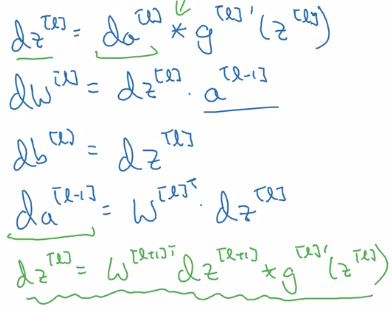 dz^[l] = da^[l] * g^[l]'(z^[l])
dW^[l] = dz^[l] · a^[l-1]
db^[l] = dz^[l]
da^[l-1] = W^[l]ᵀ · dz^[l]
dz^[l] = W^[l+1]ᵀ dz^[l+1] * g^[l]'(z^[l])